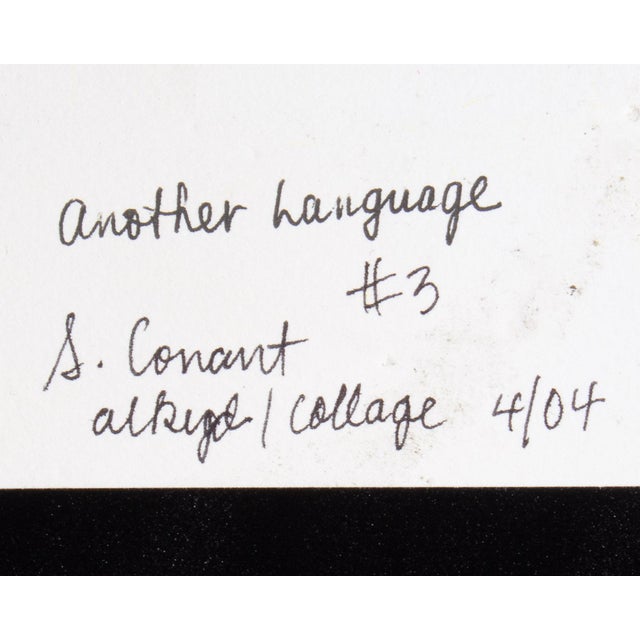 Another Language
#3
S. Conant
alkyd / Collage 4/04